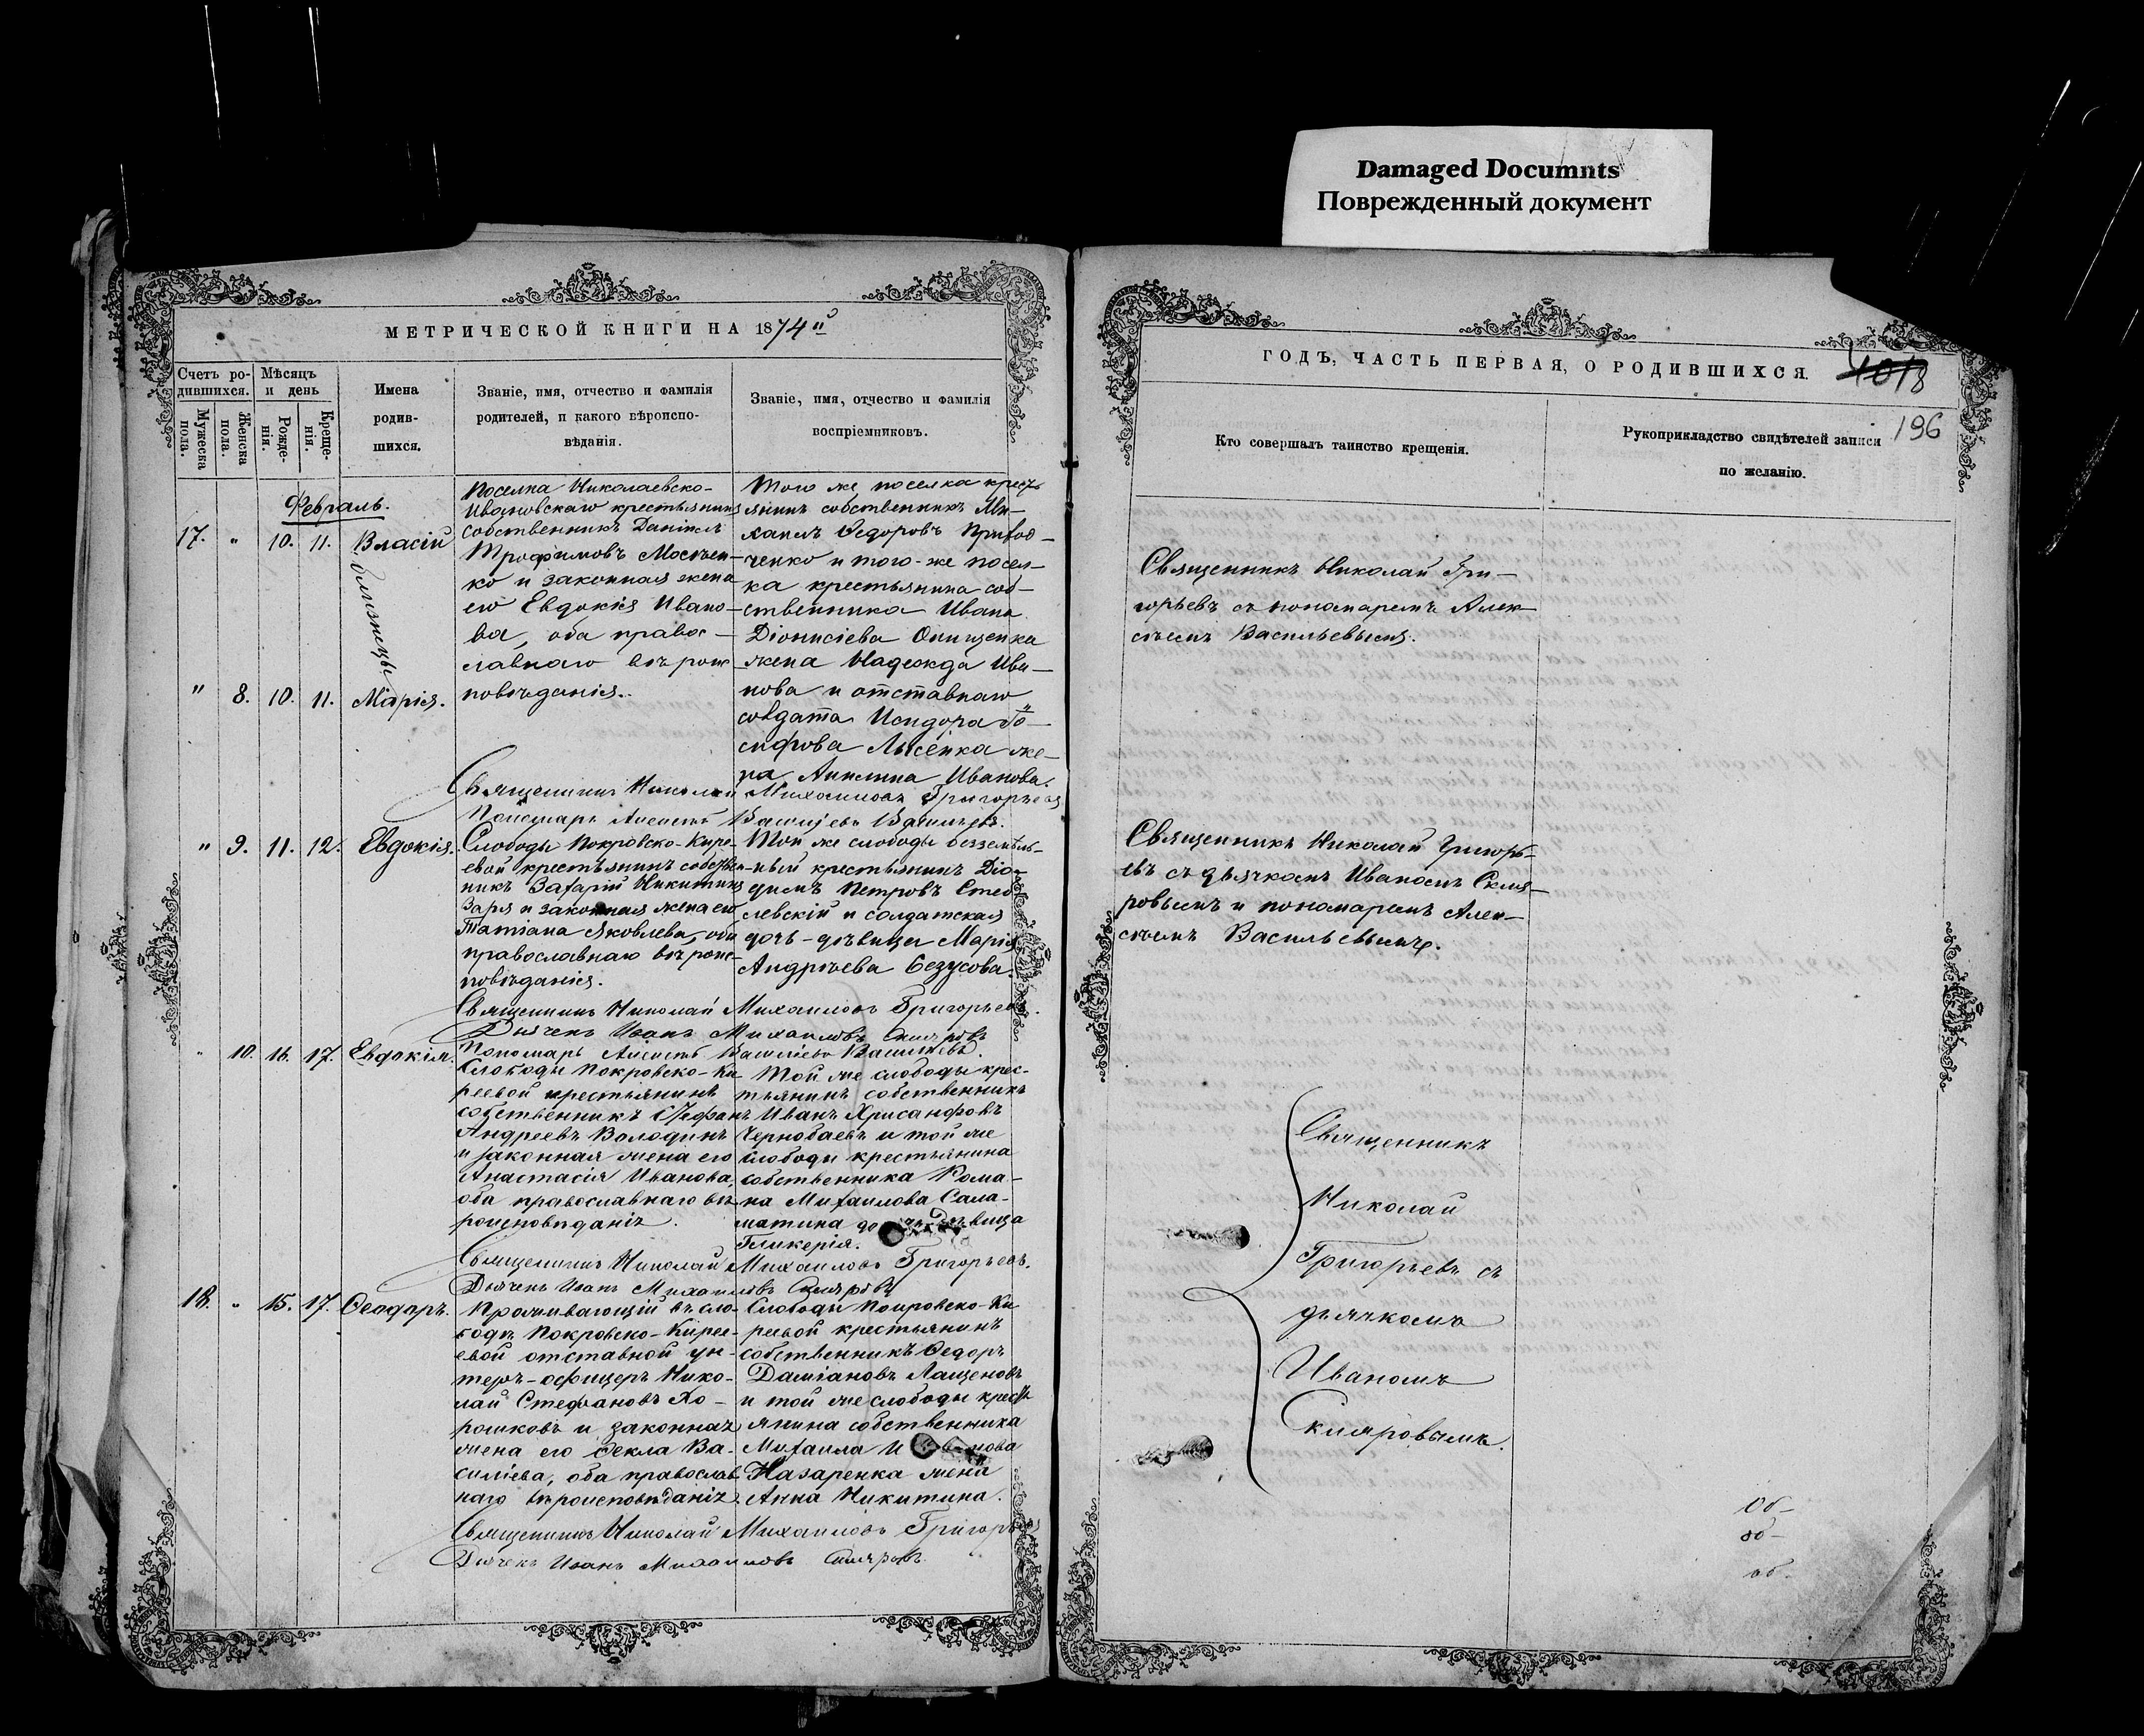 Damaged Documnts
Поврежденный документ
МЕТРИЧЕСКОЙ КНИГИ НА 1874й
Счетъ ро-
дившихся.
Мужеска
пола.
Женска
пола.
Мѣсяцъ
и день
Рожде-
нія.
Креще-
нія.
Имена
родив-
шихся.
Званіе, имя, отчество и фамилія
родителей, и какого вѣроиспо-
вѣданія.
Званіе, имя, отчество и фамилія
воспріемниковъ.
Февраль.
17. " 10. 11. Власій
близнецы
" 8. 10. 11. Марія.
Поселка Николаевско-
Ивановскаго крестьянинъ
собственникъ Даніилъ
Трофимовъ Мосьпен-
ко и законная жена
его Евдокія Ивано-
ва, оба правос-
лавнаго вѣроис
повѣданія.
Того же поселка крест
янинъ собственникъ Ми-
хаилъ Ѳедоровъ Приход-
ченко и того-же посел-
ка крестьянина соб-
ственника Ивана
Діонисіева Онищенка
жена Надежда Ива-
нова и отставнаго
солдата Исидора Іо-
сифова Лысенка же-
на Акилина Иванова.
Священникъ Николай Михаиловъ Григорьевъ
Пономарь Алексѣй Васильевъ Васильевъ.
" 9. 11. 12. Евдокія.
Слободы Покровско-Кире-
евой крестьянинъ собствен-
никъ Захарій Никитинъ
Заря и законная жена его
Татіана Яковлева, оба
православнаго вѣроис-
повѣданія.
Той же слободы безземель-
ный крестьянинъ Діо-
дімъ Петровъ
левскій и солдатская
дочь-дѣвица Марія
Андреева Безусова.
Священникъ Николай Михаиловъ Григорьевъ.
Дьячекъ Иванъ Михаиловъ Скляровъ
Пономарь Алексѣй Васильевъ Васильевъ.
" 10. 16. 17. Евдокія.
Слободы Покровско-Ки
реевой крестьянинъ
собственникъ Стефанъ
Андреевъ Володинъ
и законная жена его
Анастасія Иванова,
оба православнаго вѣ-
роисповѣданія.
Той же слободы крес-
тьянинъ собственникъ
Иванъ Хрисанфовъ
Чернобаевъ и той же
слободы крестьянина
собственника Рома-
на Михаилова Сала-
матина дочь дѣвица
Гликерія.
Священникъ Николай Михаиловъ Григорьевъ.
Дьячекъ Иванъ Михаиловъ Скляровъ
18. " 15. 17. Ѳеодоръ.
Проживающій въ сло-
бодѣ Покровско-Кире-
евой отставной ун-
теръ-офицеръ Нико-
лай Стефановъ Хо-
рошковъ и законная
жена его Ѳекла Ва-
силіева, оба православ
наго вѣроисповѣданія.
Слободы Покровско-Ки
реевой крестьянинъ
собственникъ Ѳедоръ
Даміановъ Лащеновъ
и той же слободы крест
янина собственника
Михаила Иванова
Назаренка жена
Анна Никитина.
Священникъ Николай Михаиловъ Григорьевъ
Дьячекъ Иванъ Михаиловъ Скляровъ.
ГОДЪ, ЧАСТЬ ПЕРВАЯ, О РОДИВШИХСЯ.
196
Кто совершалъ таинство крещенія.
Рукоприкладство свидѣтелей записи
по желанію.
Священникъ Николай Гри-
горьевъ съ пономаремъ Алек-
сѣемъ Васильевымъ.
Священникъ Николай Григорь-
евъ съ дьячкомъ Иваномъ Скля-
ровымъ и пономаремъ Алек-
сѣемъ Васильевымъ.
Священникъ
Николай
Григорьевъ съ
дьячкомъ
Иваномъ
Скляровымъ.
Об-
об-
об-